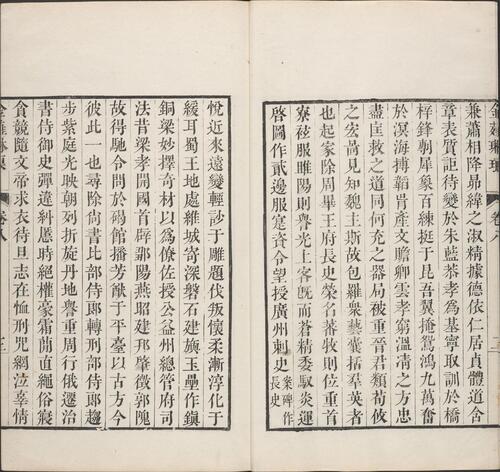 兼蕭相降昴緯之淑精據德依仁居貞體道含
章表質詎待變於朱藍恭孝為基寧取訓於橋
梓鋒剸犀象百練挺于昆吾翼掩鴛鴻九萬奮
於溟海博韜胄產文贍卿雲孝窮溫凊方忠
盡匡救之道同何充之器局被重晉君類荀攸
之宏啚見知魏主斯故包羅衆藝囊括羣英者
也起家除周畢王府長史榮名蕃牧則位重首
寮袨服睢陽則譽光上客旣而蒼精委馭炎運
啓圖作貳邊服寔資令望授廣州刺史案碑作
長史
悅近來遠變輕訬于雕題伐叛懷柔漸淳化于
緩耳蜀王地處維城寄深磐石建旟玉壘作鎭
銅梁妙擇奇材以為僚佐授公益州總管府司
法昔梁孝開國首辟鄒陽燕昭建邦肇徵郭隗
故得馳令問於碣館播芳猷于平臺以古方今
彼此一也尋除尙書比部侍郞轉刑部侍郞趨
步紫庭光映朝列折旋丹地譽重周行俄遷治
書侍御史彈違糾慝時絕權豪霜簡直繩俗寢
貪競隨文帝求衣待旦志在恤刑咒網泣辜情